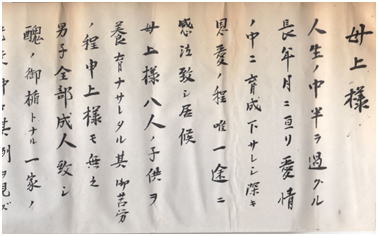 母上様
人生ノ中半ヲ過グル
長年月ニ亘リ愛情
ノ中ニ育成下サレシ深キ
恩愛ノ程唯一途ニ
感泣致シ居候
母上様八人ノ子供ヲ
養育ナサレタル其御苦労
ノ程申上様モ無之
男子全部成人致シ
醜ノ御楯トナル一家ノ
其例ヲ見ズ